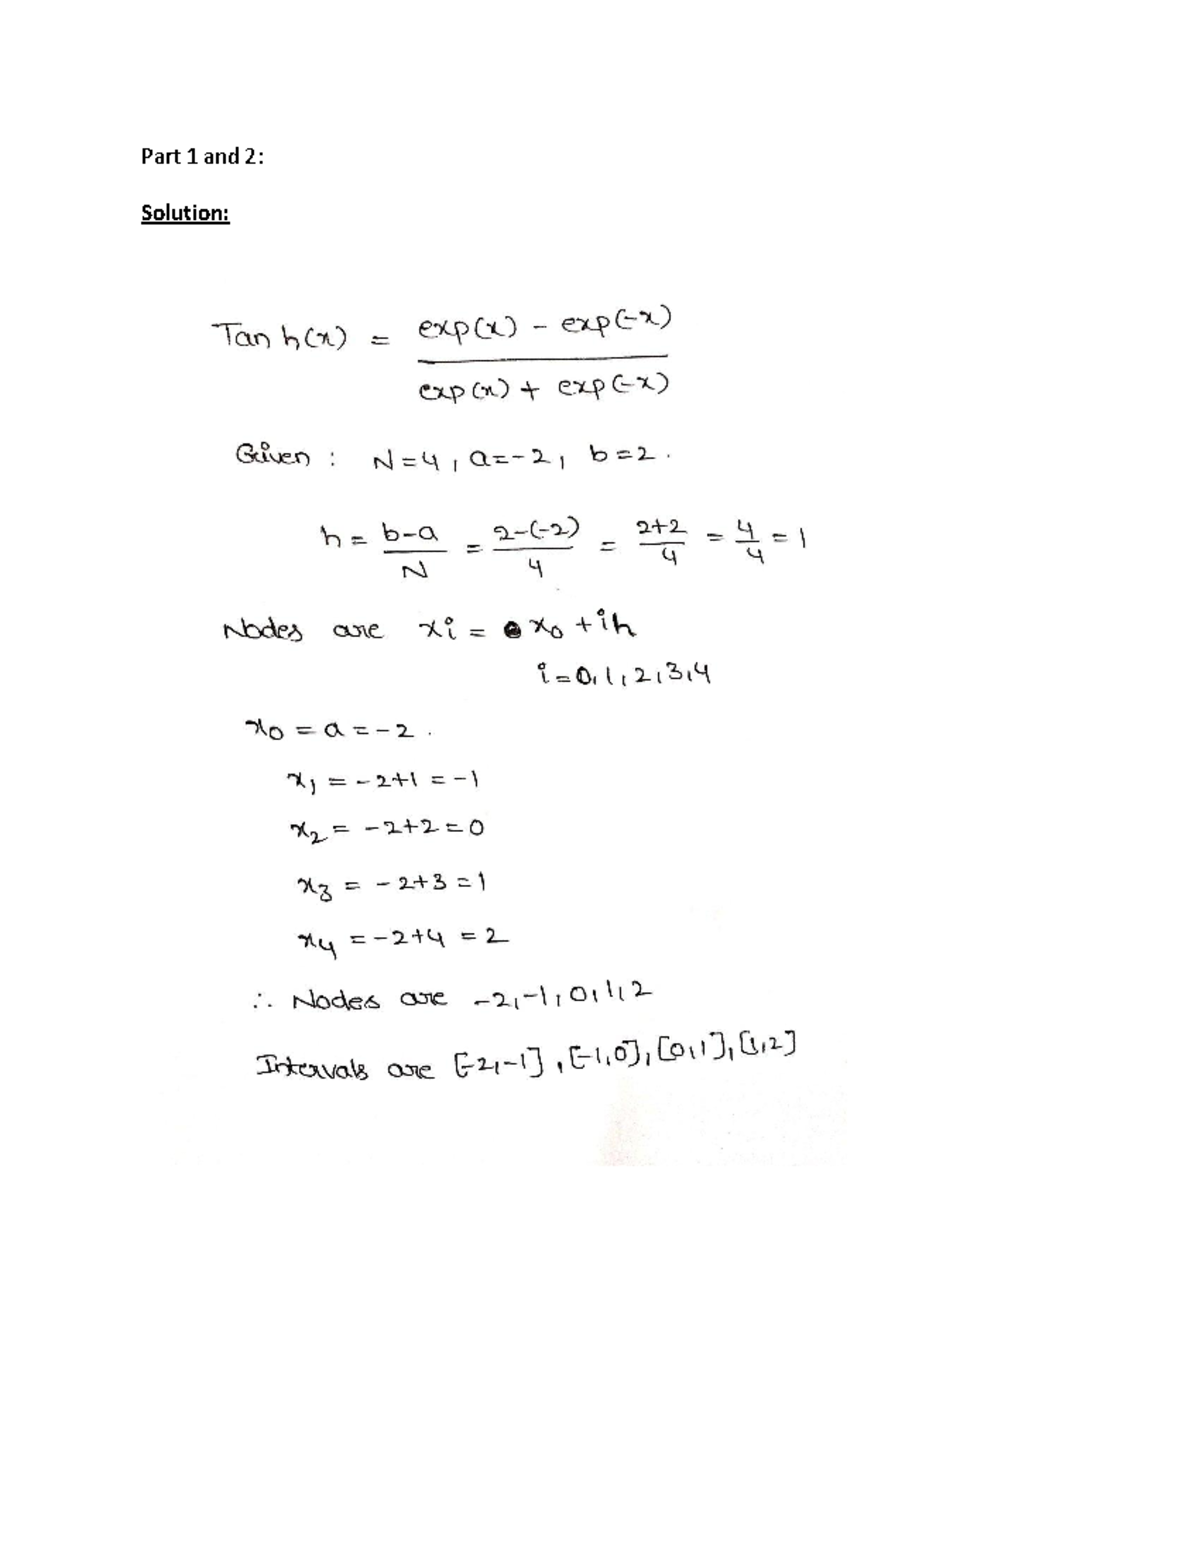 Part 1 and 2:
Solution:
Tan h(x) = exp(x) - exp(-x)
exp(x) + exp(-x)
Given : N=4, a=-2, b=2.
h = b-a = 2-(-2) = 2+2 = 4 = 1
N 4 4 4
Nodes are xi = x0 + ih
i=0,1,2,3,4
x0 = a = -2.
x1 = -2+1 = -1
x2 = -2+2 = 0
x3 = -2+3 = 1
x4 = -2+4 = 2
∴ Nodes are -2,-1,0,1,2
Intervals are [-2,-1], [-1,0], [0,1], [1,2]